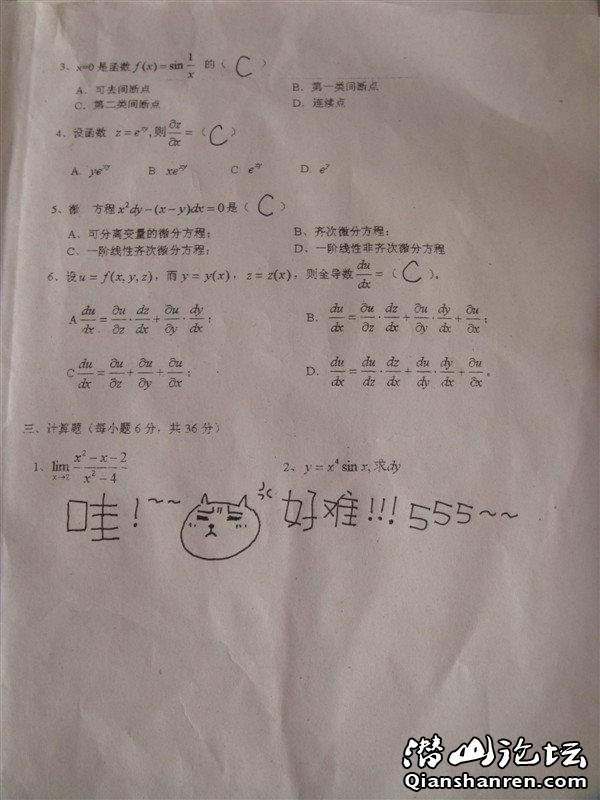 3、x=0 是函数 f(x) = sin 1/x 的（ C ）
A．可去间断点 B．第一类间断点
C．第二类间断点 D．连续点
4、设函数 z = e^{xy}, 则 ∂z/∂x = （ C ）
A. ye^{xy} B. xe^{xy} C. e^{xy} D. e^y
5、微 方程 x²dy-(x-y)dx=0 是（ C ）
A、可分离变量的微分方程； B、齐次微分方程；
C、一阶线性齐次微分方程； D、一阶线性非齐次微分方程
6、设 u = f(x, y, z)，而 y = y(x)，z = z(x)，则全导数 du/dx = （ C ）。
A du/dx = ∂u/∂z · dz/dx + ∂u/∂y · dy/dx； B． du/dx = ∂u/∂z · dz/dx + ∂u/∂y · dy/dx + ∂u/∂x；
C du/dx = ∂u/∂z + ∂u/∂y + ∂u/∂x； D． du/dx = du/dz · dz/dx + du/dy · dy/dx + ∂u/∂x。
三、计算题（每小题 6 分，共 36 分）
1、lim x→2 (x² - x - 2)/(x² - 4) 2、y = x⁴ sin x, 求dy
哇！~~ 好难!!! 555~~
潜山论坛
Qianshanren.com